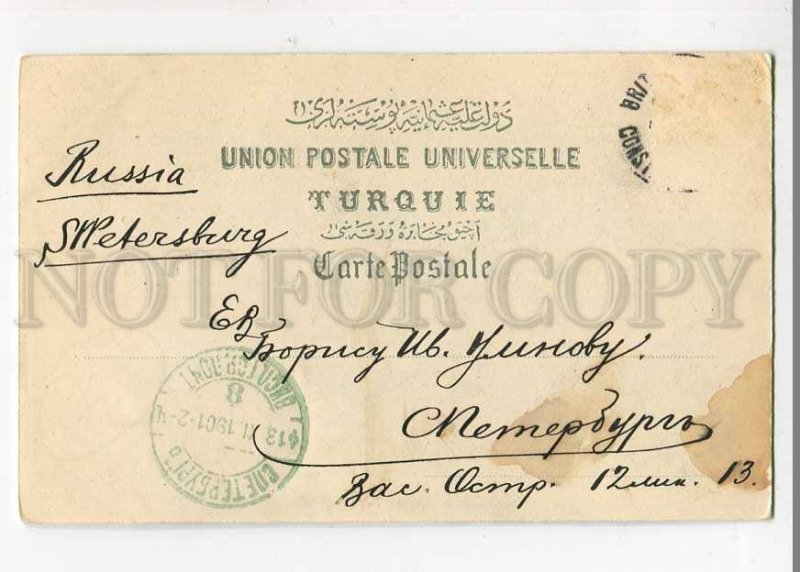 دولت عليه عثمانيه پوسته لرى
UNION POSTALE UNIVERSELLE
TURQUIE
آچيق مخابره ورقه سى
Carte Postale
BRIT
CONST
Russia
S Petersburg
NOT FOR COPY
ЕВ
Борису Ив.
СПетербургъ
Вас. Остр. 12 лин. 13.
С.ПЕТЕРБУРГЪ
13 XI.1901
8